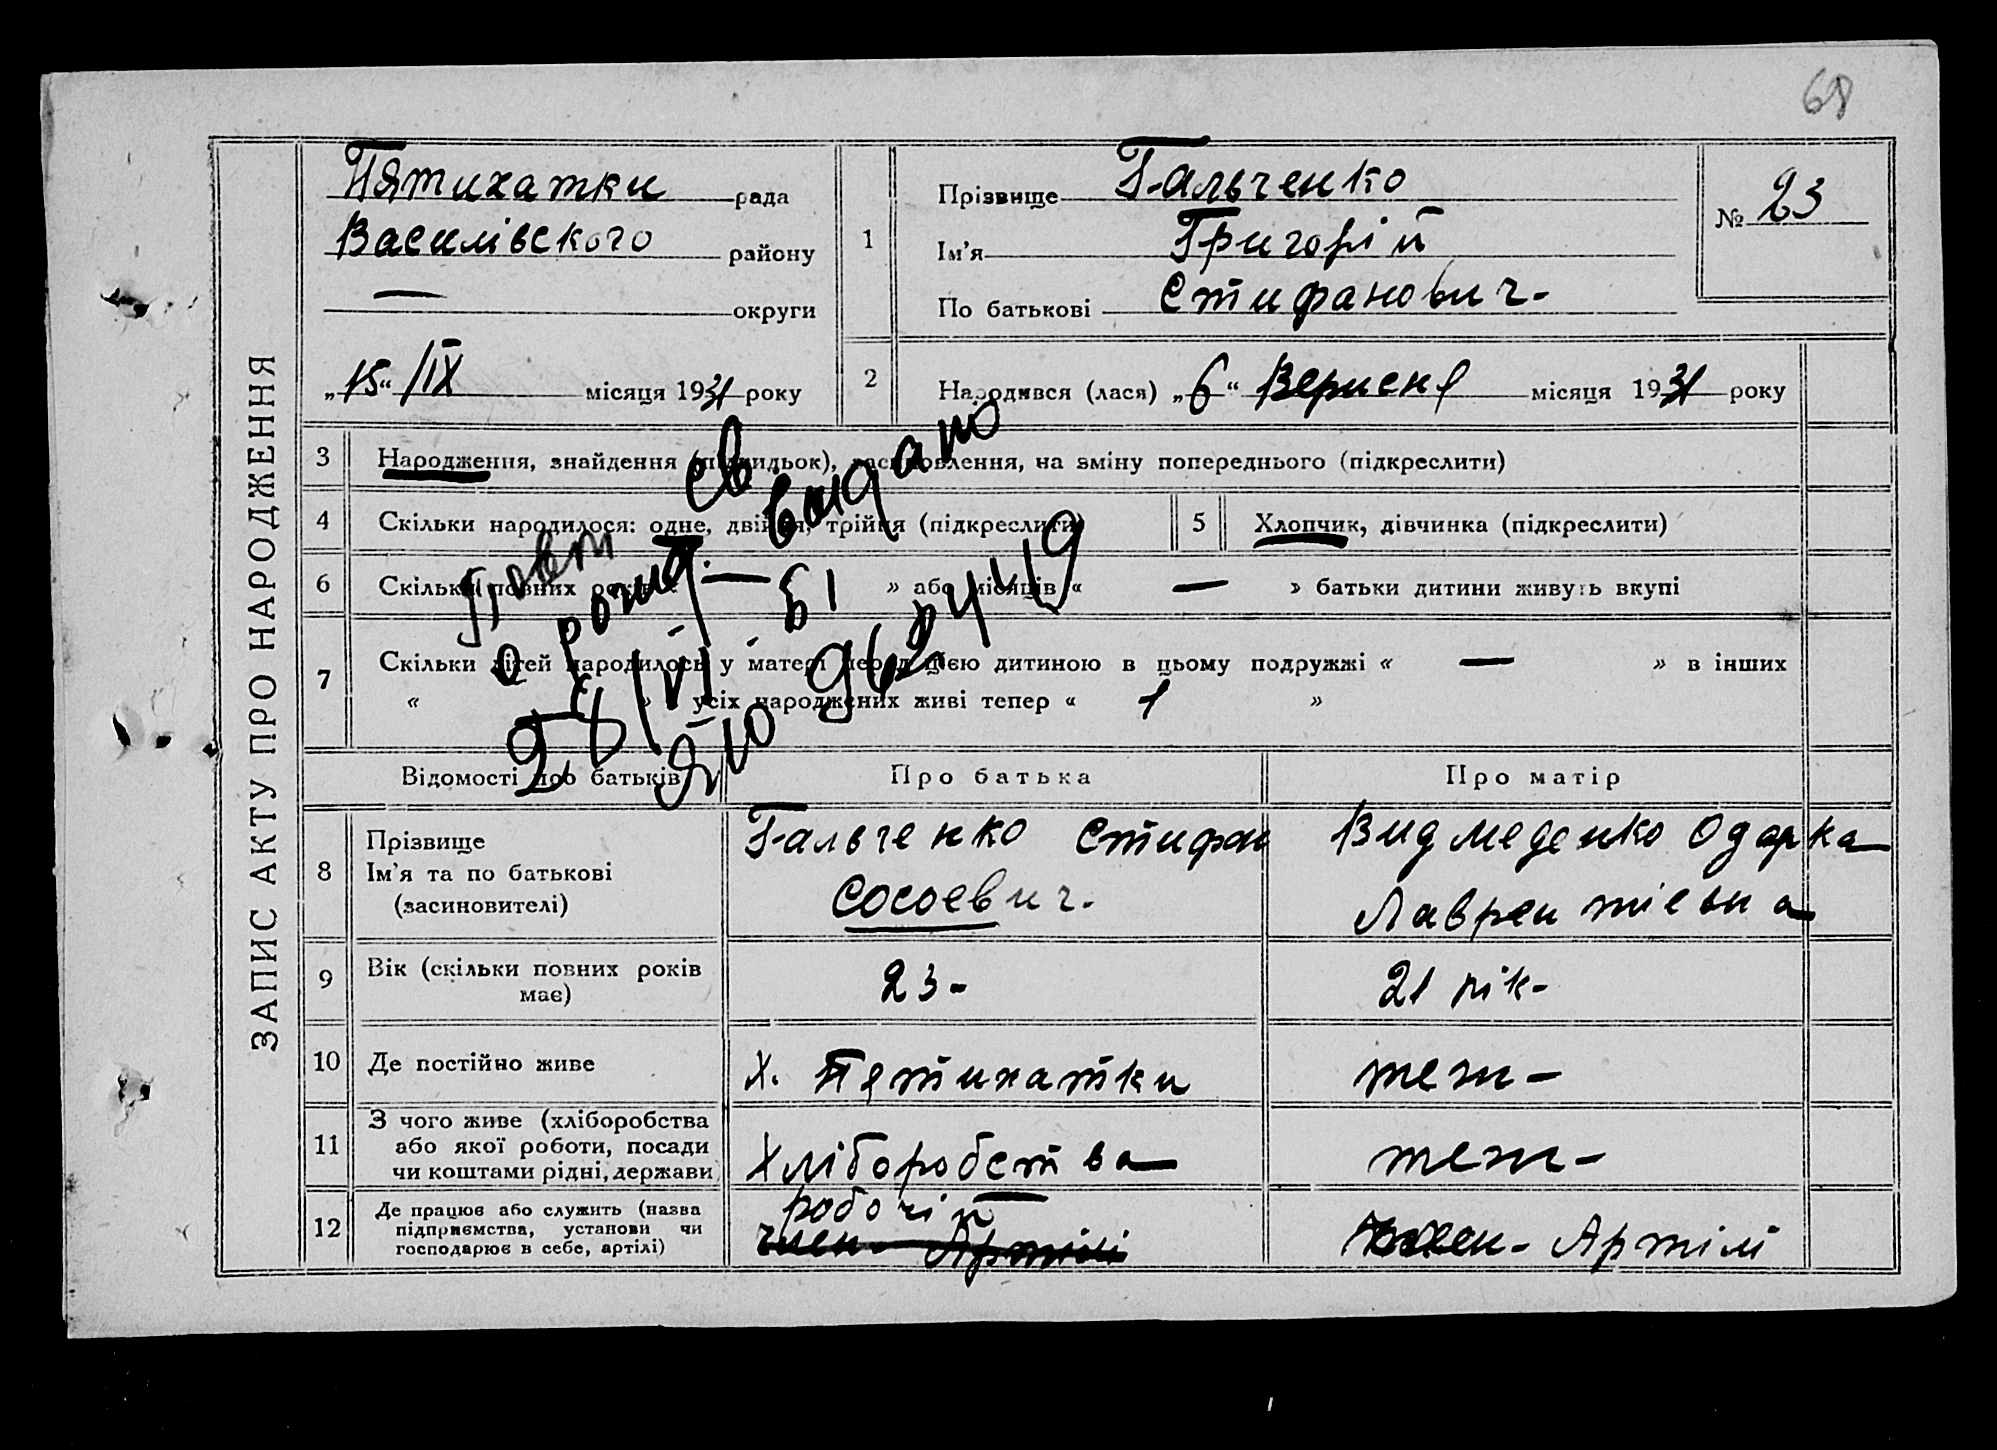 68
ЗАПИС АКТУ ПРО НАРОДЖЕННЯ
Пятихатки рада
Василівского району
— округи
„15“ /IX місяця 1931 року
1
Прізвище Гальченко
Ім'я Григорій
По батькові Стифанович.
№ 23
2 Народився (лася) „6“ Вересня місяця 1931 року
3 Народження, знайдення (підкидьок), засиновлення, на зміну попереднього (підкреслити)
4 Скільки народилося: одне, двійня, трійня (підкреслити)
5 Хлопчик, дівчинка (підкреслити)
6 Скільки повних років « — » або місяців « — » батьки дитини живуть вкупі
7 Скільки дітей народилось у матері перед цією дитиною в цьому подружжі « — » в інших
« » усіх народжених живі тепер « 1 »
Повт св
о рожд. выдано
28/VI — 51
ЯЮ
Відомості про батьків
Про батька
Про матір
8 Прізвище
Ім'я та по батькові
(засиновителі)
Гальченко Стифан
Сосоевич.
Видмеденко Одарка
Лаврентіевна
9 Вік (скільки повних років
має)
23-
21 рік-
10 Де постійно живе
х. Пятихатки
теж-
11 З чого живе (хліборобства
або якої роботи, посади
чи коштами рідні, держави
Хліборобства
теж-
12 Де працює або служить (назва
підприємства, установи чи
господарює в себе, артілі)
робочій
член- Артілі
член- Артілі